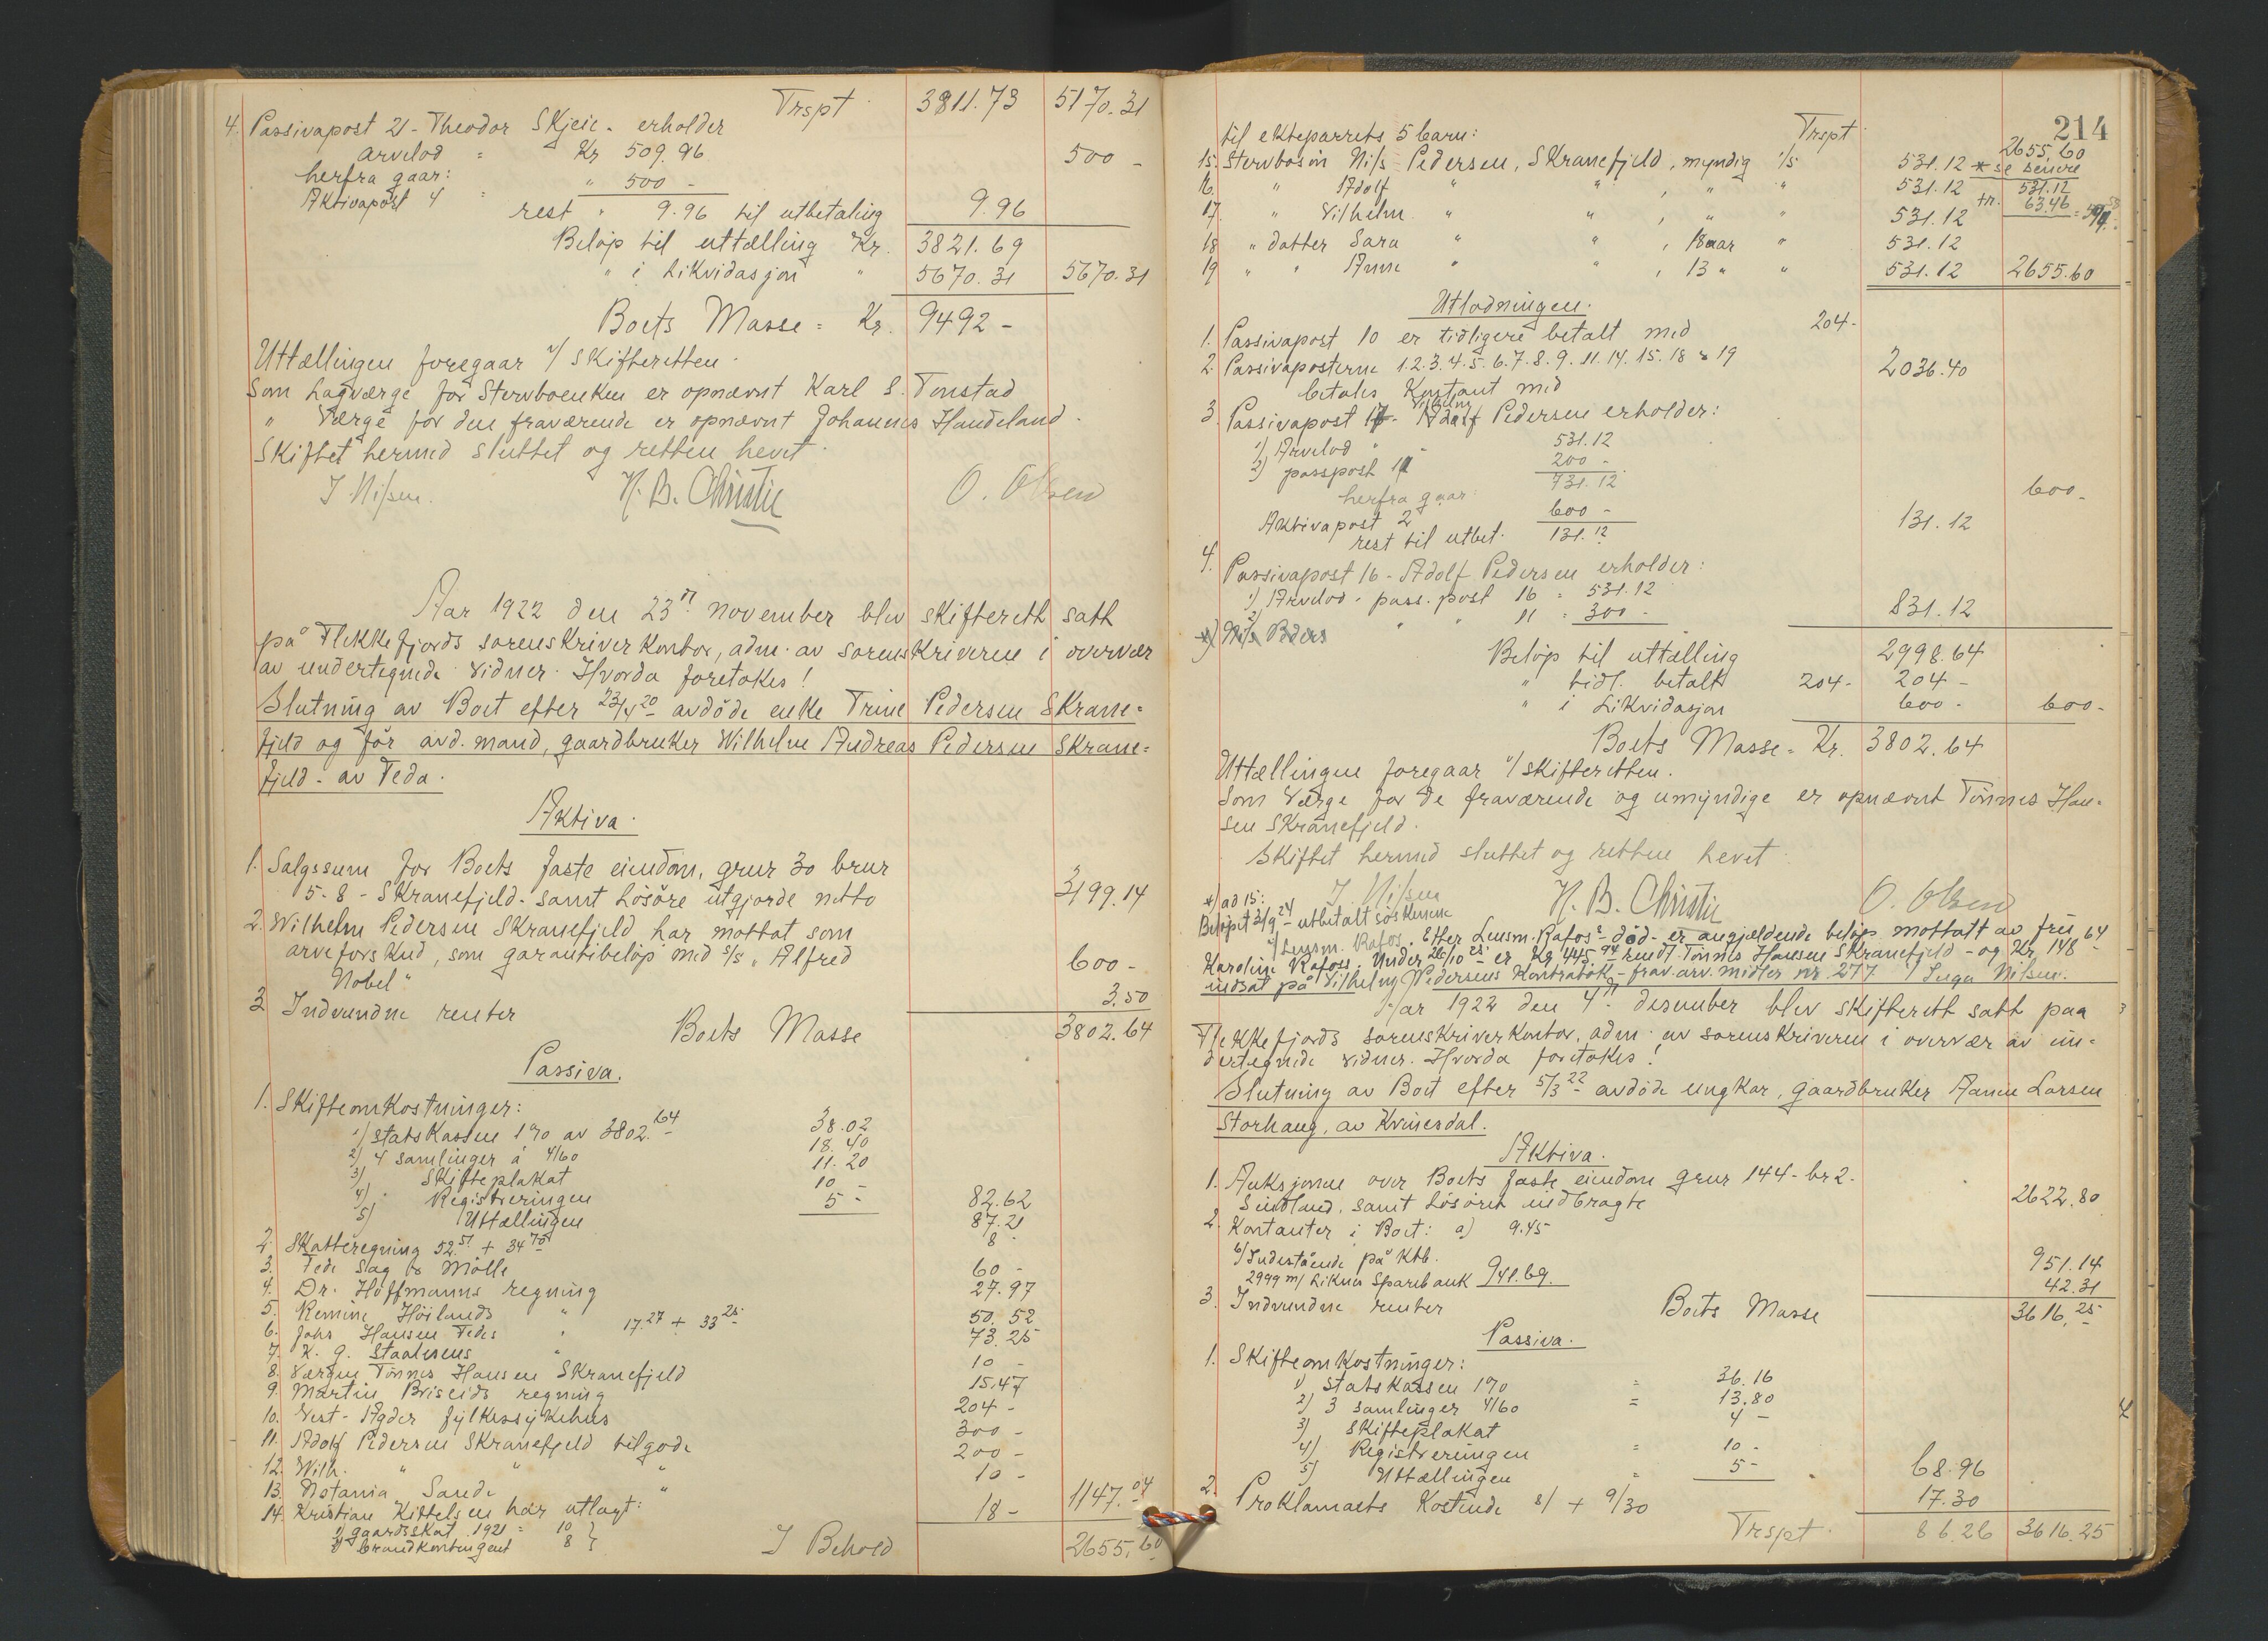 Trspt 3811.73 5170.31
4. Passivapost 21 - Theodor Skjeie - erholder
arvelod = Kr 509.96
herfra gaar:
Aktivapost 4 = " 500 - 500 -
rest " 9.96 til utbetaling 9.96
Beløp til uttælling Kr. 3821.69
" i Likvidasjon " 5670.31 5670.31
Boets Masse = Kr. 9492 -
Uttællingen foregaar v/ skifteretten.
Som lagværge for Stervboenken er opnævnt Karl S. Tonstad
" Værge for den fraværende er opnævnt Johannes Haudeland.
Skiftet hermed sluttet og retten hevet.
I. Nilsen. N. B. Christie O. Olsen
Aar 1922 den 23n november blev skifterett satt
på Flekkefjords sorenskriverkontor, adm. av sorenskriveren i overvær
av undertegnede vidner. Hvorda foretokes!
Slutning av Boet efter 23/4 20 avdøde enke Trine Pedersen Skrane=
fjeld og før avd. mand, gaardbruker Wilhelm Andreas Pedersen Skrane=
fjeld - av Feda.
Aktiva.
1. Salgssum for Boets faste eiendom, gnr 30 bnr
5-8 - Skranefjeld - samt Løsøre utgjorde netto 3199.14
2. Wilhelm Pedersen Skranefjeld har mottat som
arveforskud, som garantibeløp med s/s "Alfred
Nobel" 600 -
3. Indvundne renter 3.50
Boets Masse 3802.64
Passiva.
1. Skifteomkostninger:
1) statskassen 1% av 3802.64 38.02
2) 4 samlinger á 4/60 18.40
3) Skifteplakat 11.20
4) Registreringen 10 -
5) Uttællingen 5 - 82.62
2. Skatteregning 52.51 + 34.70 87.21
3. Feda Sag & Mølle 8 -
4. Dr. Hoffmanns regning 60 -
5. Remine Høilands " 27.97
6. Johs Hansen Fedes " 17.27 + 33.25 50.52
7. K. G. Staalesens " 73.25
8. Værgen Tønnes Hansen Skranefjeld 10 -
9. Martin Briseids regning 15.47
10. Vest-Agder fylkessykehus 204 -
11. Adolf Pedersen Skranefjeld tilgode 300 -
12. Wilh. " " " 200 -
13. Notania Sande " 10 -
14. Kristian Kittelsen har utlagt:
1) gaardsskat 1921 = 10 }
2) brandkontingent 8 } 18 - 1147.04
I Behold 2655.60
214
Trspt 2655.60
til ekteparrets 5 barn:
15. Stervbosøn Nils Pedersen, Skranefjeld, myndig 1/5 531.12 * se senere
16. " Adolf " " , " " 531.12 531.12
17. " Vilhelm " " , " " 531.12 +r. 63.46
18. " datter Sara " " , 18 aar " 531.12
19. " " Anne " " , 13 " " 531.12 2655.60
Utlodningen.
1. Passivapost 10 er tidligere betalt med 204 -
2. Passivaposterne 1.2.3.4.5.6.7.8.9.11.14.15.18 & 19
betales Kontant med 2036.40
3. Passivapost 17 - Vilhelm Adolf Pedersen erholder:
1) Arvelod " 531.12
2) passpost 11 200 -
731.12
herfra gaar:
Aktivapost 2 600 - 600 -
rest til utbet. 131.12 131.12
4. Passivapost 16 - Adolf Pedersen erholder:
1) Arvelod - pass. post 16 = 531.12
2) " " 11 = 300 - 831.12
*) Nils Peders
Beløp til uttælling 2998.64
" tidl. betalt 204 - 204 -
" i Likvidasjon 600 - 600 -
Boets Masse = Kr. 3802.64
Uttællingen foregaar v/ skifteretten.
Som Værge for de fraværende og umyndige er opnævnt Tønnes Han=
sen Skranefjeld.
Skiftet hermed sluttet og retten hevet
I. Nilsen N. B. Christie O. Olsen
*) ad 15:
Beløpet 3/9 24 - utbetalt søsknene
v/ Lensm. Rafos. Efter Lensm. Rafos's død - er angjældende beløp mottatt av fru
Karoline Rafoss. Under 26/10 25 er Kr 445.94 rendt. Tønnes Hansen Skranefjeld - og Kr. 148.64
indsat på Vilhelm Pedersens Kontrabok - frav. arv. midler nr 277 Inga Nilsen.
Aar 1922 den 4n desember blev skifterett satt paa
Flekkefjords sorenskriverkontor, adm. av sorenskriveren i overvær av un=
dertegnede vidner. Hvorda foretokes!
Slutning av Boet efter 5/3 22 avdøde ungkar, gaardbruker Aanen Larsen
Storhaug, av Kvinesdal.
Aktiva.
1. Auksjonen over Boets faste eiendom gnr 144 - br 2.
Sindland, samt Løsøret indbragte 2622.80
2. Kontanter i Boet: a) 9.45
b) Indestående på Ktb.
2999 m/ Liknes Sparebank 941.69 951.14
3. Indvundne renter 42.31
Boets Masse 3616.25
Passiva.
1. Skifteomkostninger:
1) Statskassen 1% = 36.16
2) 3 samlinger 4/60 = 13.80
3) Skifteplakat 4 -
4) Registreringen = 10 -
5) Uttællingen " 5 - 68.96
2. Proklamaets Kostende 8/ + 9/30 17.30
Trspt. 86.26 3616.25